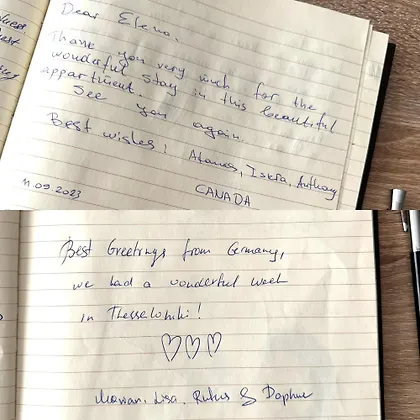 Dear Elena,
Thank you very much for the
wonderful stay in this beautiful
appartment.
See you again.
Best wishes: Atanas, Iskra, Anthony
11.09.2023
CANADA
Best Greetings from Germany,
we had a wonderful week
in Thessaloniki!
Lisa, Rufus & Daphne